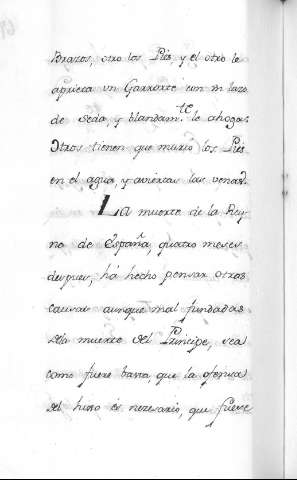 Brazos, otro los Pies y el otro le
aprieta un Garrote con un lazo
de Seda, y blandam.te le ahoga:
Otros tienen que murió los Pies
en el agua, y aviertas las venas.
La muerte de la Rey-
na de España, quatro meses
despues, há hecho pensar otras
causas aunque mal fundadas
dela muerte del Principe, sea
como fuere basta, que la ofensa
del hierro es nezesario, que fuese